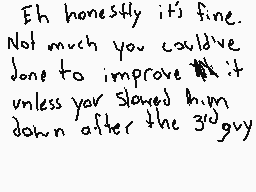 Eh honestly it's fine.
Not much you could've
done to improve it
unless you slowed him
down after the 3rd guy